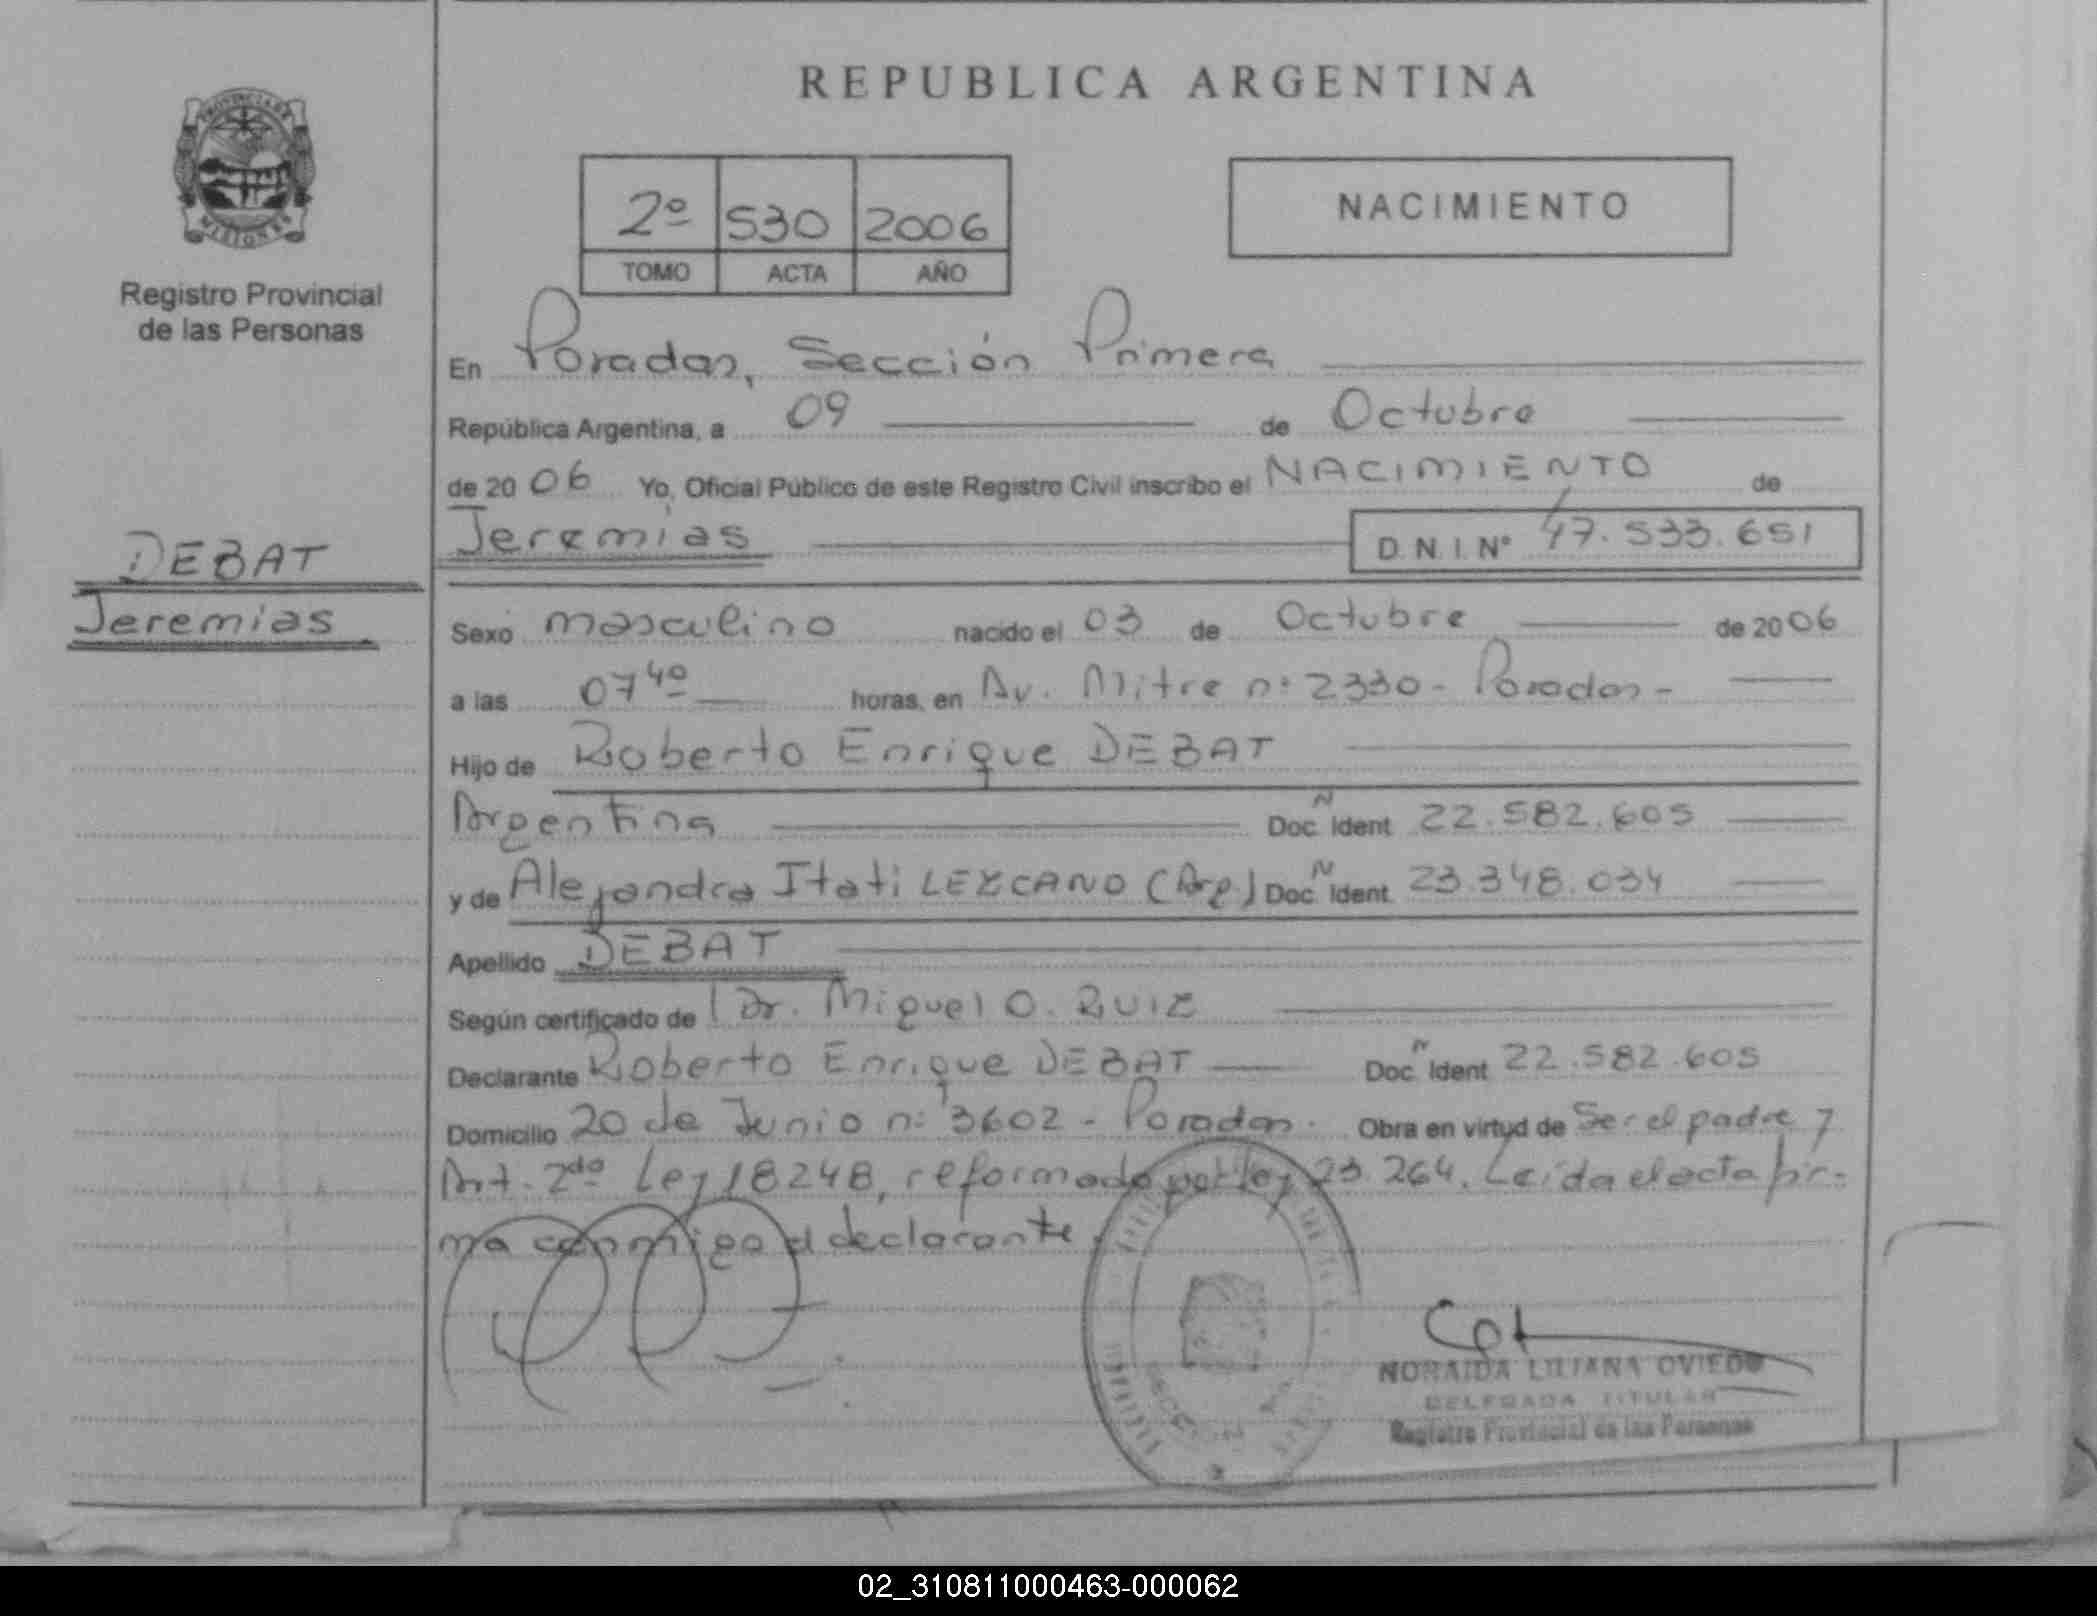 REPUBLICA ARGENTINA
PROVINCIA DE
MISIONES
Registro Provincial
de las Personas
2º 530 2006
TOMO ACTA AÑO
NACIMIENTO
En Posadas, Sección Primera
República Argentina, a 09 de Octubre
de 2006 Yo, Oficial Público de este Registro Civil inscribo el NACIMIENTO de
Jeremias D.N.I. Nº 47.533.651
DEBAT
Jeremias
Sexo masculino nacido el 03 de Octubre de 2006
a las 07 40 horas, en Av. Mitre nº 2330 - Posadas -
Hijo de Roberto Enrique DEBAT
Argentina Doc. Ident 22.582.605
y de Alejandra Itati LEZCANO (Arg.) Doc. Ident. 23.348.034
Apellido DEBAT
Según certificado de Dr. Miguel O. RUIZ
Declarante Roberto Enrique DEBAT Doc. Ident 22.582.605
Domicilio 20 de Junio nº 3602 - Posadas. Obra en virtud de Ser el padre y
Art. 2do Ley 18248, reformado por ley 23.264. Leída el acta fir-
ma conmigo el declarante.
NORAIDA LILIANA OVIEDO
DELEGADA TITULAR
Registro Provincial de las Personas
02_310811000463-000062